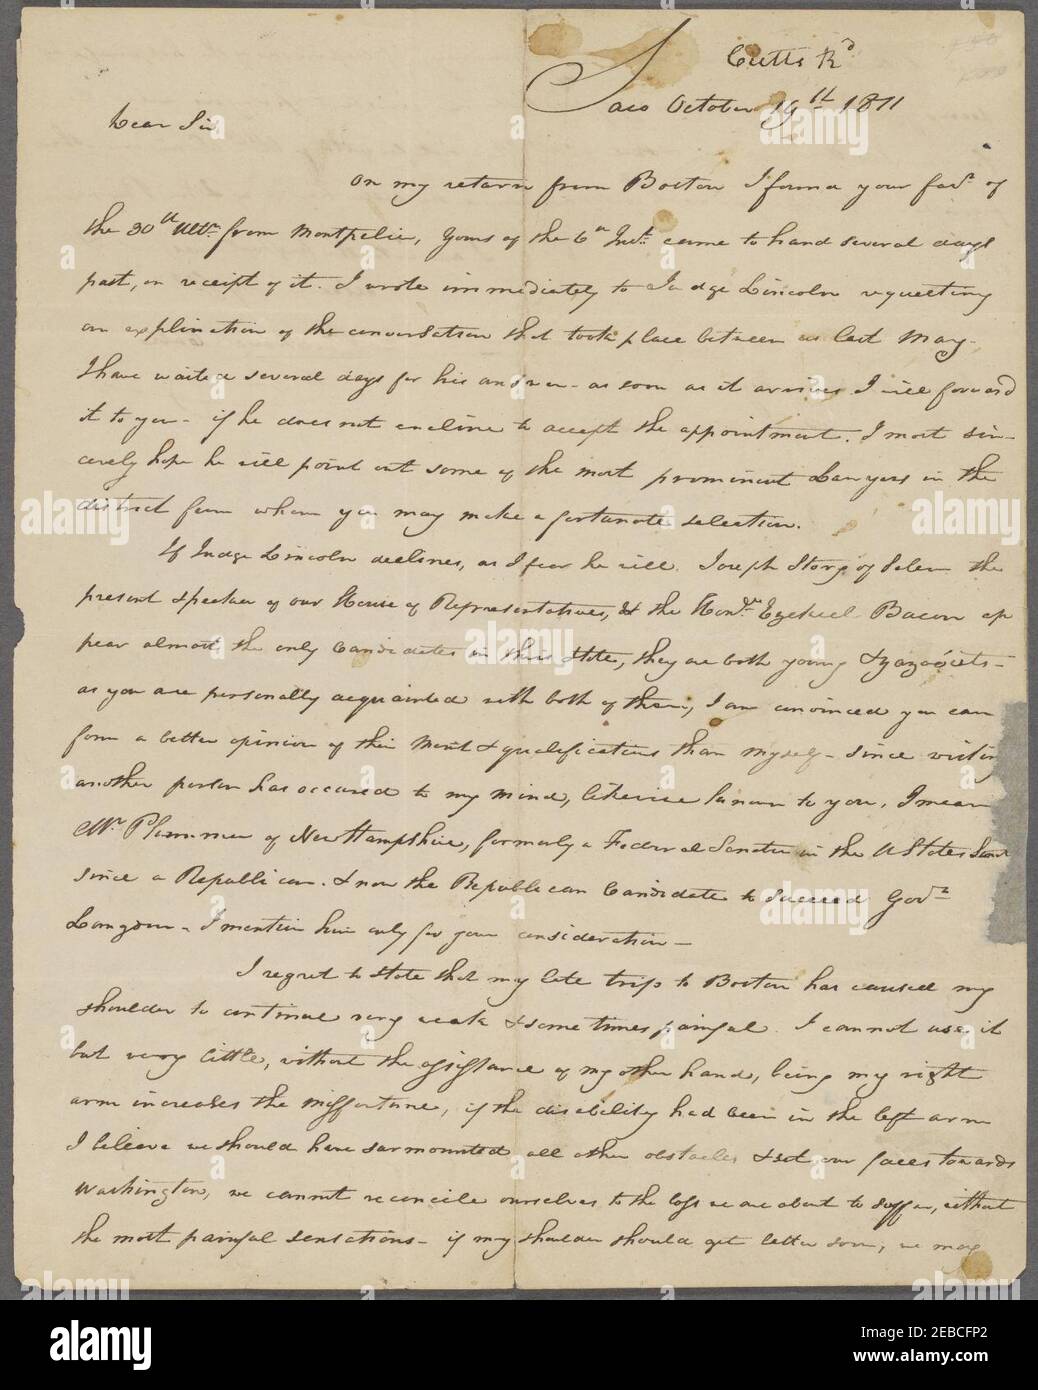 Cutts Rd
Saco October 19th 1811
Dear Sir
On my return from Boston I found your favr. of
the 30th Ultr. from Montpelier, Yours of the 6th Inst. came to hand several days
past, on receipt of it. I wrote immediately to Judge Lincoln requesting
an explination of the conversation that took place between us last May-
I have waited several days for his answer- as soon as it arrives I will forward
it to you- if he does not encline to accept the appointment. I most sin-
cerely hope he will point out some of the most prominent Lawyers in the
district from whom you may make a fortunate selection.
If Judge Lincoln declines, as I fear he will. Joseph Story of Salem the
present speaker of our House of Representatives, & the Honble. Ezekiel Bacon ap
pear almost the only Candidates in this State, they are both young &
as you are personally acquainted with both of them, I am convinced you can
form a better opinion of their Merit & qualifications than myself- since writing
another person has occured to my mind, likewise known to you, I mean
Mr. Plummer of New Hampshire, formerly a Federal Senator in the U States Senat
since a Republican. & now the Republican Candidate to succeed Govr.
Langdon- I mention him only for your consideration-
I regret to state that my late trip to Boston has caused my
shoulder to continue very weak & sometimes painful. I cannot use it
but very little, without the assistance of my other hand, being my right
arm increases the missfortune, if the disability had been in the left arm
I believe we should have surmounted all other obstacles & set our faces towards
Washington, we cannot reconcile ourselves to the loss we are about to suffer, without
the most painful sensations- if my shoulder should get better soon, we may
alamy
Image ID: 2EBCFP2
www.alamy.com